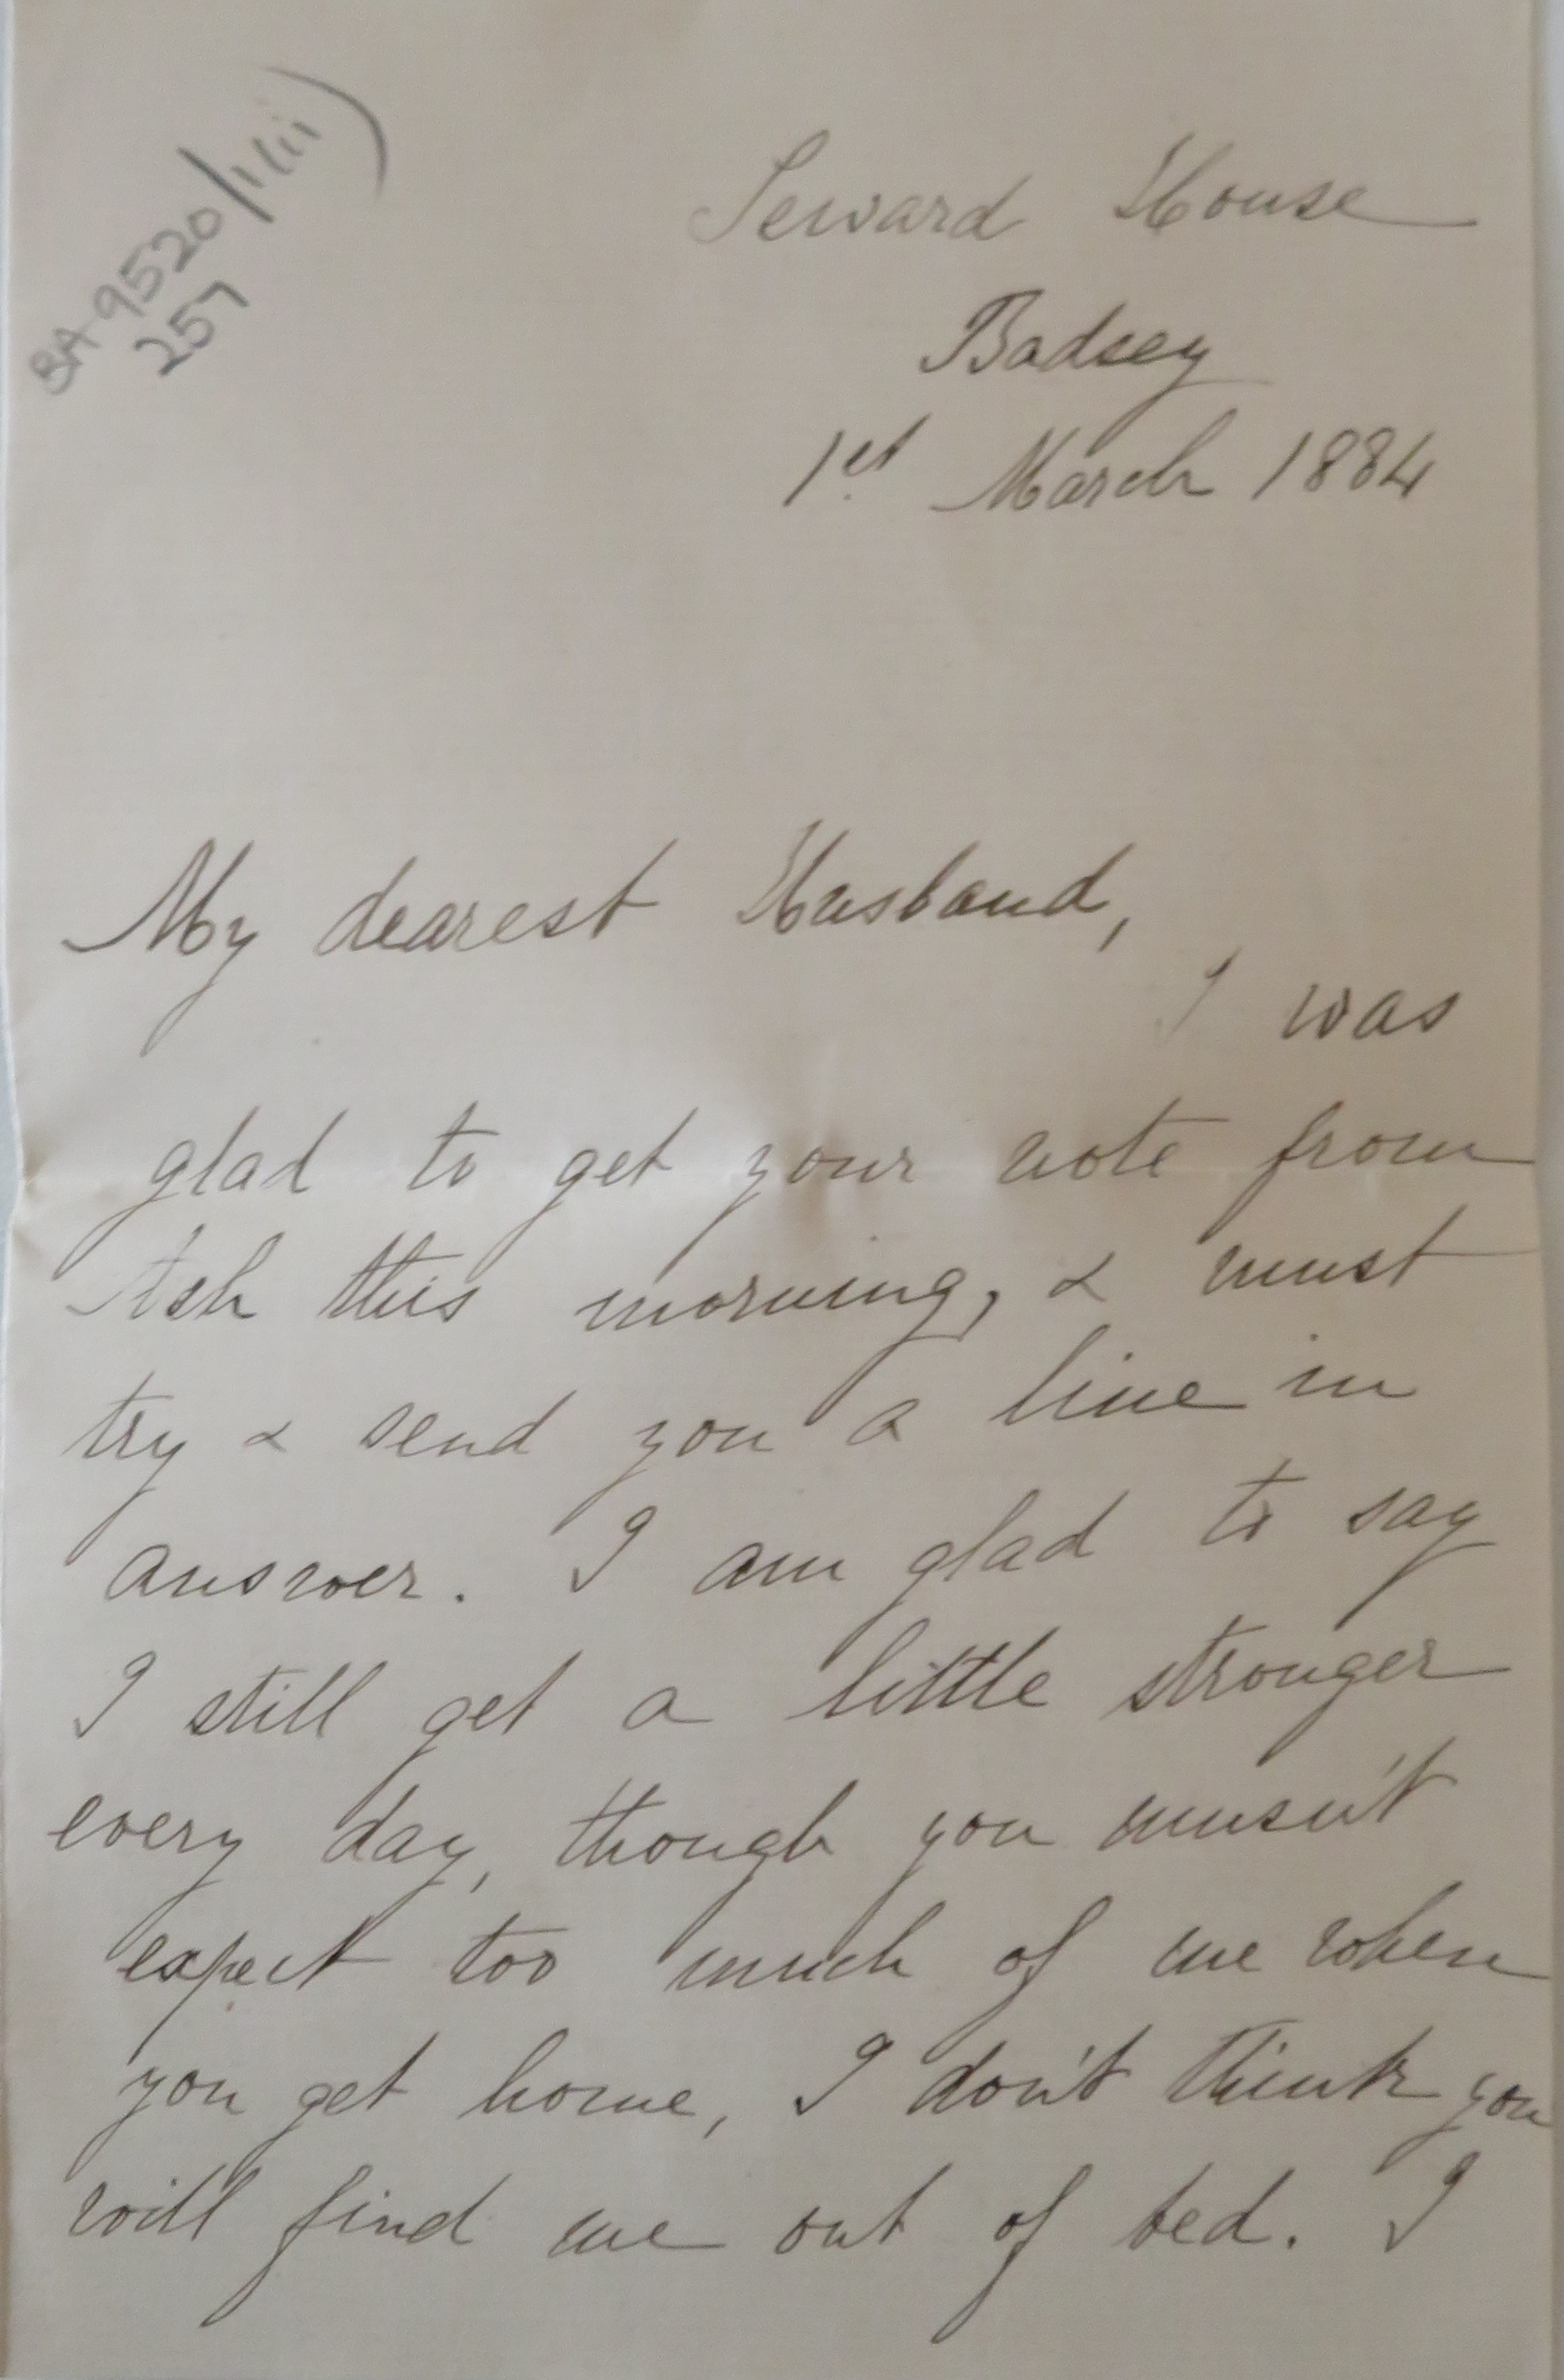 BA 9520/1(ii)
257
Seward House
Badsey
1st March 1884
My dearest Husband,
I was
glad to get your note from
Ash this morning, & must
try & send you a line in
answer. I am glad to say
I still get a little stronger
every day, though you musn't
expect too much of me when
you get home, I don't think you
will find me out of bed. I